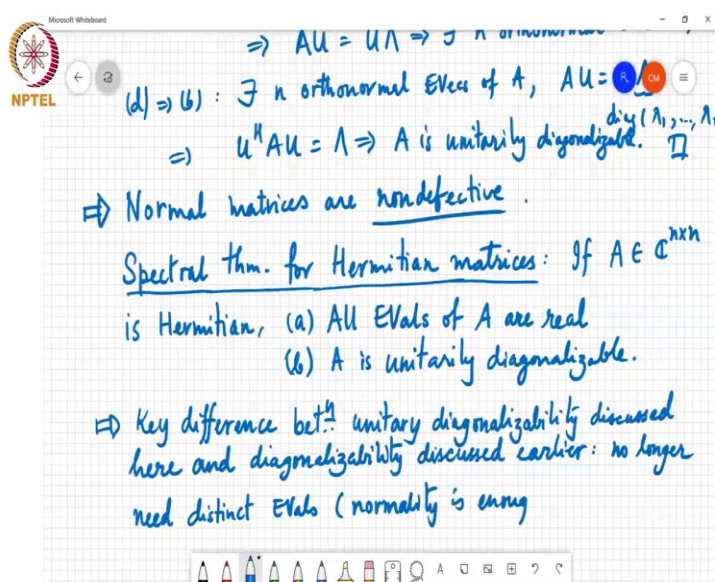 Microsoft Whiteboard
⇒ AU = UΛ ⇒ ∃ n orthonormal
NPTEL
CM
(d) ⇒ (b) : ∃ n orthonormal EVecs of A, AU =
diag(λ₁, ..., λ
⇒ Uᴴ AU = Λ ⇒ A is unitarily diagonalizable.
⇒ Normal matrices are nondefective.
Spectral thm. for Hermitian matrices: If A ∈ ℂⁿˣⁿ
is Hermitian, (a) All EVals of A are real
(b) A is unitarily diagonalizable.
⇒ Key difference betⁿ unitary diagonalizability discussed
here and diagonalizability discussed earlier: no longer
need distinct EVals (normality is enoug